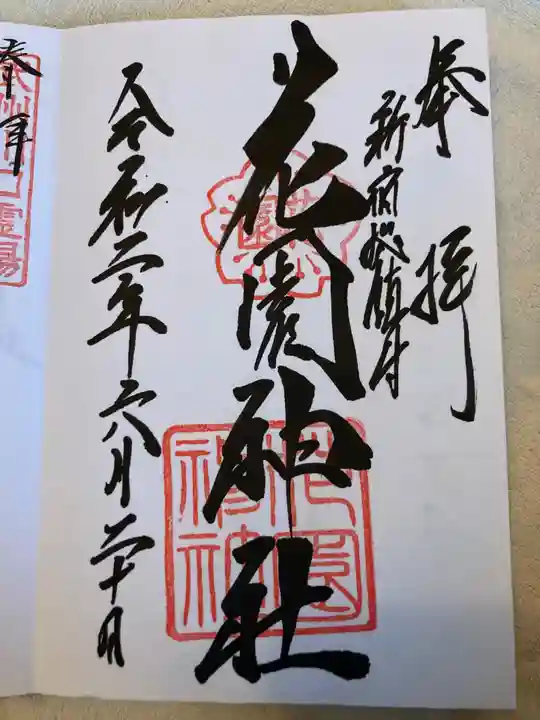 奉拝
新宿総鎮守
花園神社
花園
花園神社
令和二年六月二十日
奉拝
霊場